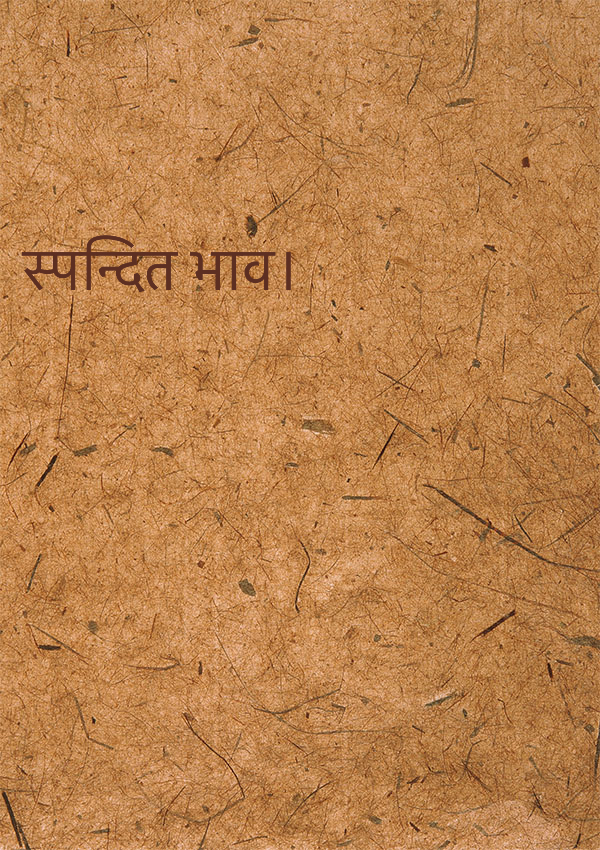 स्पन्दित भाव।